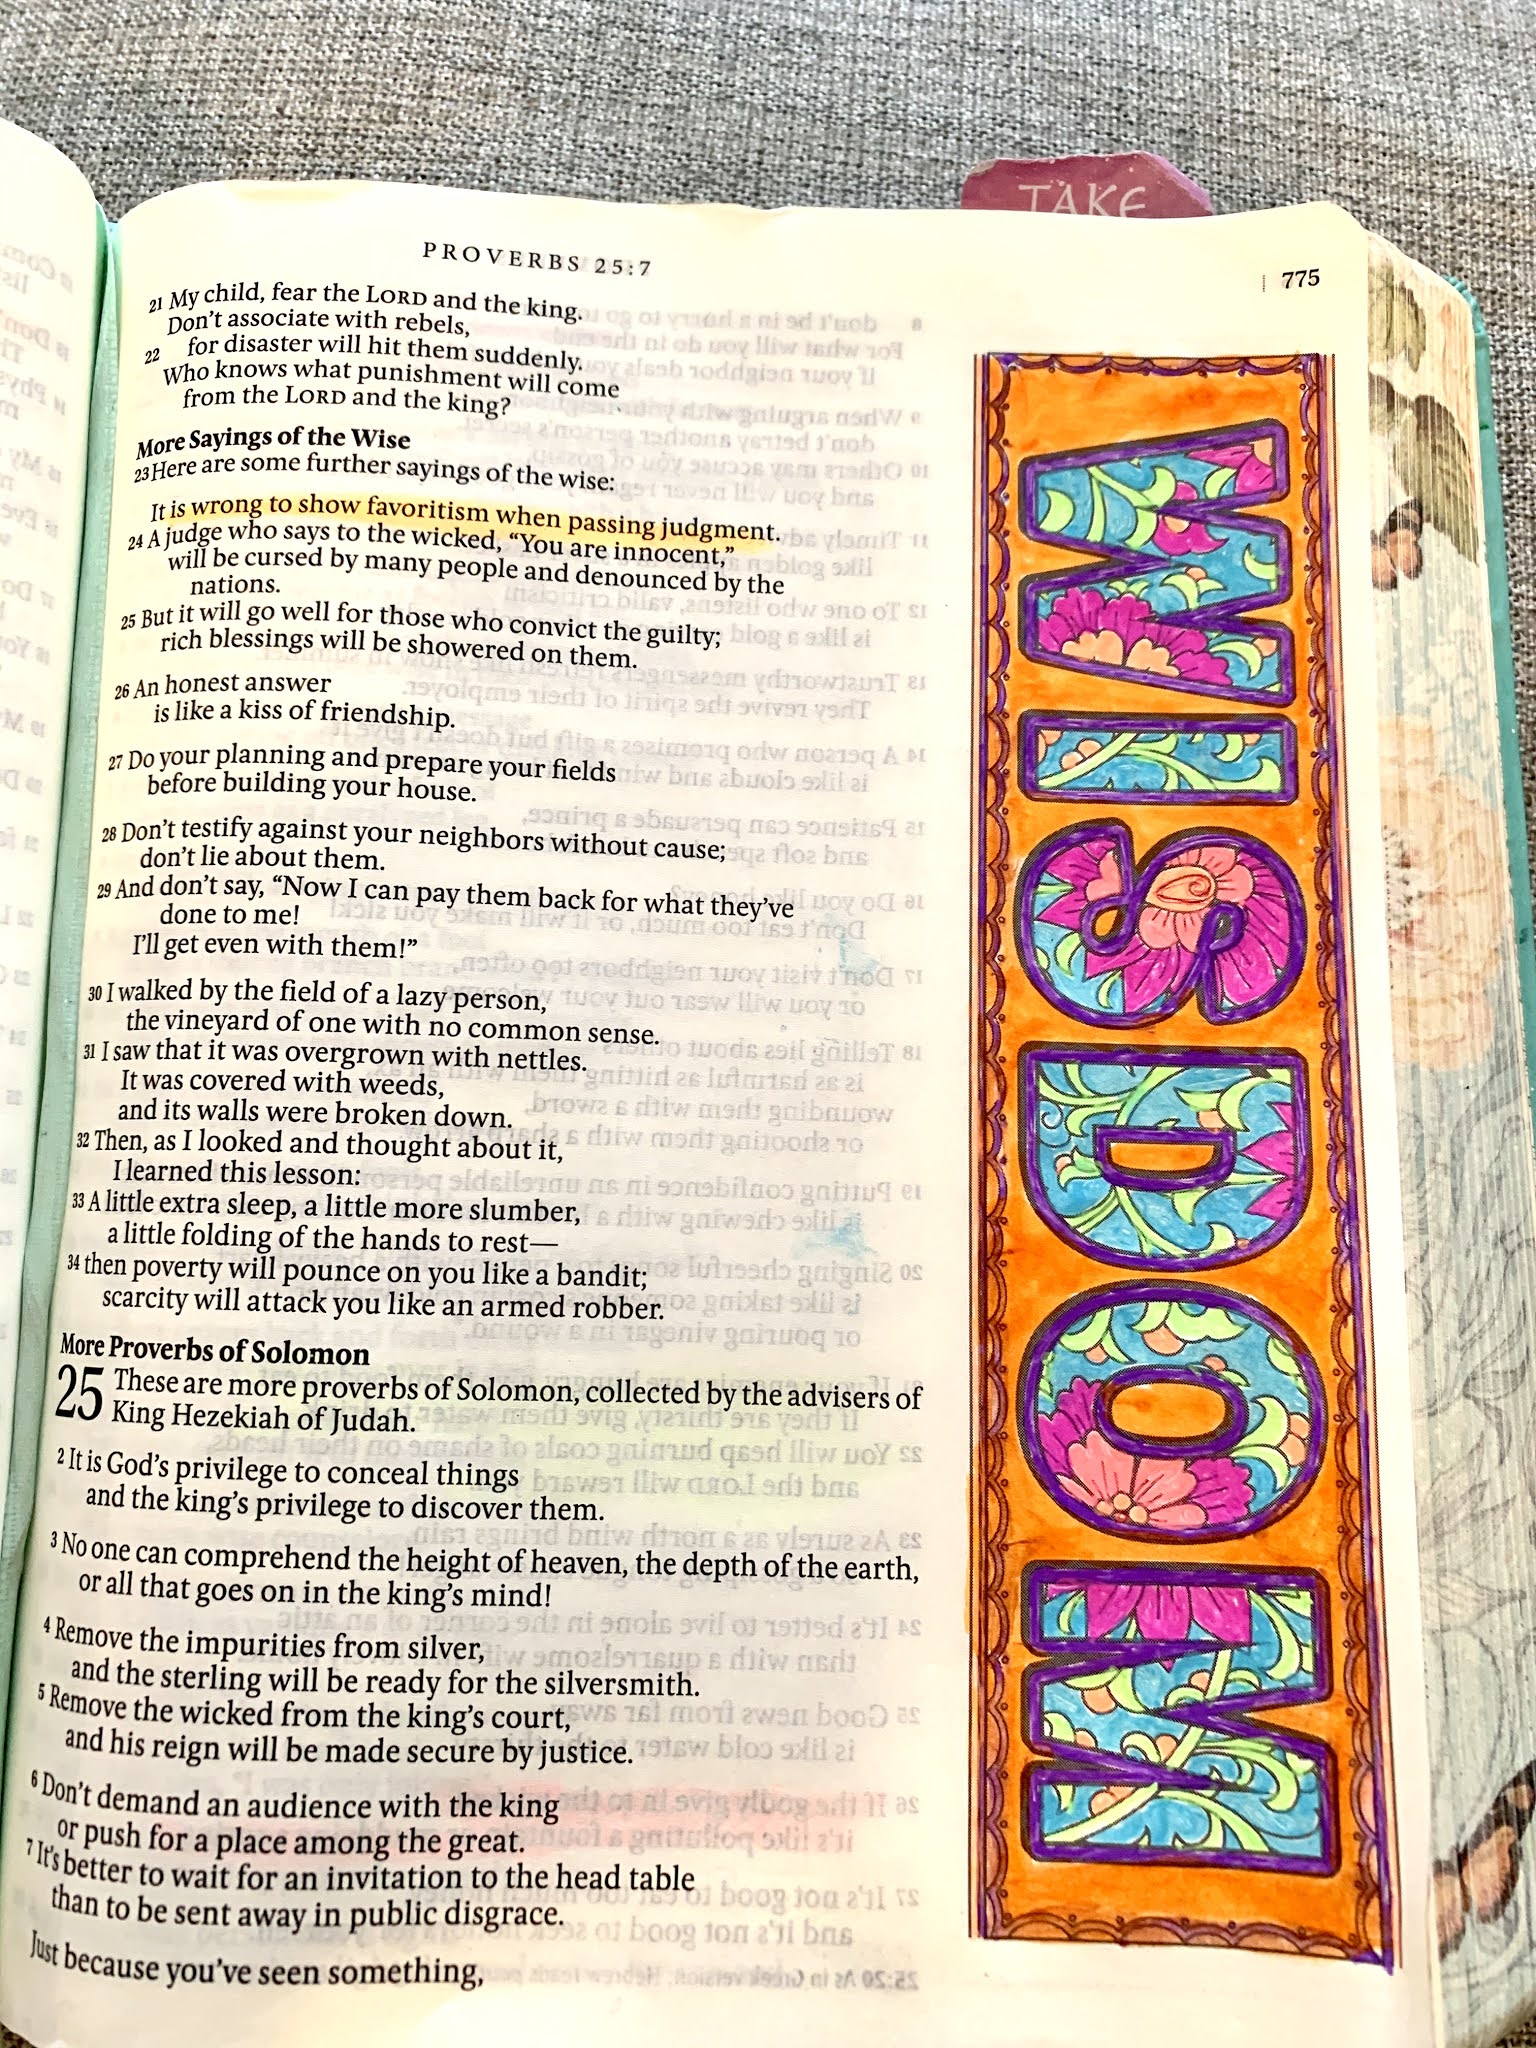 TAKE
PROVERBS 25:7
775
21 My child, fear the LORD and the king.
Don't associate with rebels,
22 for disaster will hit them suddenly.
Who knows what punishment will come
from the LORD and the king?
More Sayings of the Wise
23 Here are some further sayings of the wise:
It is wrong to show favoritism when passing judgment.
24 A judge who says to the wicked, “You are innocent,”
will be cursed by many people and denounced by the
nations.
25 But it will go well for those who convict the guilty;
rich blessings will be showered on them.
26 An honest answer
is like a kiss of friendship.
27 Do your planning and prepare your fields
before building your house.
28 Don't testify against your neighbors without cause;
don't lie about them.
29 And don't say, “Now I can pay them back for what they've
done to me!
I'll get even with them!”
30 I walked by the field of a lazy person,
the vineyard of one with no common sense.
31 I saw that it was overgrown with nettles.
It was covered with weeds,
and its walls were broken down.
32 Then, as I looked and thought about it,
I learned this lesson:
33 A little extra sleep, a little more slumber,
a little folding of the hands to rest—
34 then poverty will pounce on you like a bandit;
scarcity will attack you like an armed robber.
More Proverbs of Solomon
25 These are more proverbs of Solomon, collected by the advisers of
King Hezekiah of Judah.
2 It is God's privilege to conceal things
and the king's privilege to discover them.
3 No one can comprehend the height of heaven, the depth of the earth,
or all that goes on in the king's mind!
4 Remove the impurities from silver,
and the sterling will be ready for the silversmith.
5 Remove the wicked from the king's court,
and his reign will be made secure by justice.
6 Don't demand an audience with the king
or push for a place among the great.
7 It's better to wait for an invitation to the head table
than to be sent away in public disgrace.
Just because you've seen something,
WISDOM